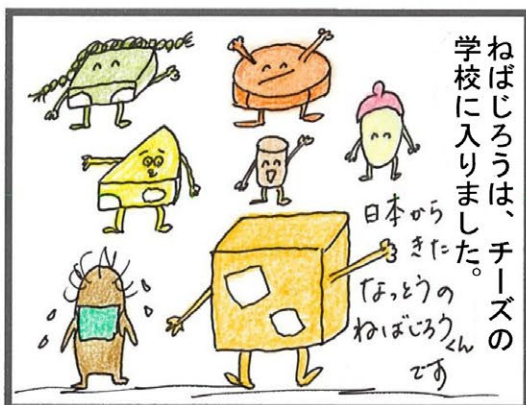 ねばじろうは、チーズの
学校に入りました。
日本から
きた
なっとうの
ねばじろうくん
です